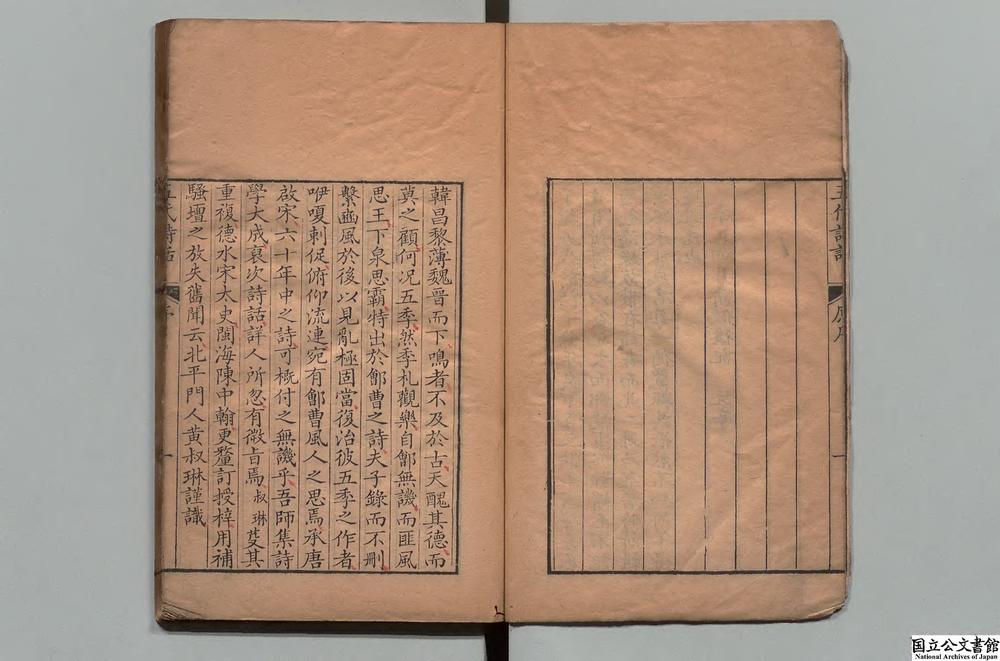 五代詩話
原序
一
韓昌黎薄魏晉而下鳴者不及於古天醜其德而
莫之顧何況五季然季札觀樂自鄶無譏而匪風
思王下泉思霸特出於鄶曹之詩夫子錄而不刪
繫豳風於後以見亂極固當復治彼五季之作者
咿嗄刺促俯仰流連宛有鄶曹風人之思焉承唐
啟宋六十年中之詩可槪付之無譏乎吾師集詩
學大成裒次詩話詳人所忽有微旨焉叔琳芟其
重複德水宋太史閩海陳中翰更釐訂授梓用補
騷壇之放失舊聞云北平門人黃叔琳謹識
五代詩話
序
一
国立公文書館
National Archives of Japan